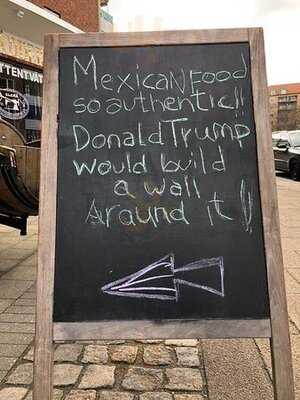 TTENTVAT
MexicaN Food
so authentic!!
Donald Trump
would build
a wall
Araund it !!